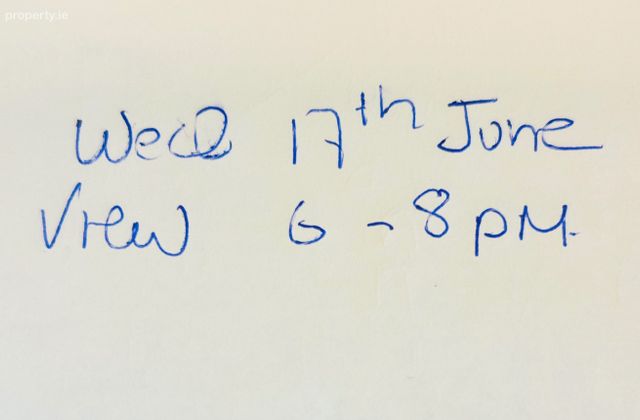 property.ie
Wed 17th June
View 6 - 8 pM.